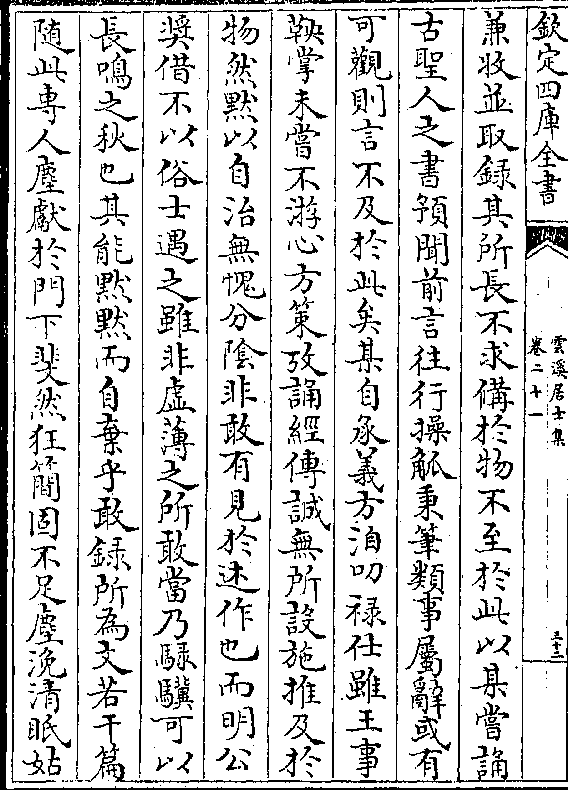 欽定四庫全書
雲溪居士集
卷二十一
三十二
兼收並取錄其所長不求備於物不至於此以某嘗誦
古聖人之書預聞前言往行操觚秉筆類事屬辭或有
可觀則言不及於此矣某自承義方洎叨祿仕雖王事
鞅掌未嘗不游心方策攷誦經傳誠無所設施推及於
物然黙以自治無愧分陰非敢有見於述作也而明公
奨借不以俗士遇之雖非虛薄之所敢當乃騄驥可以
長鳴之秋也其能黙黙而自棄乎敢錄所為文若干篇
随此専人塵獻於門下斐然狂簡固不足塵浼清眂姑